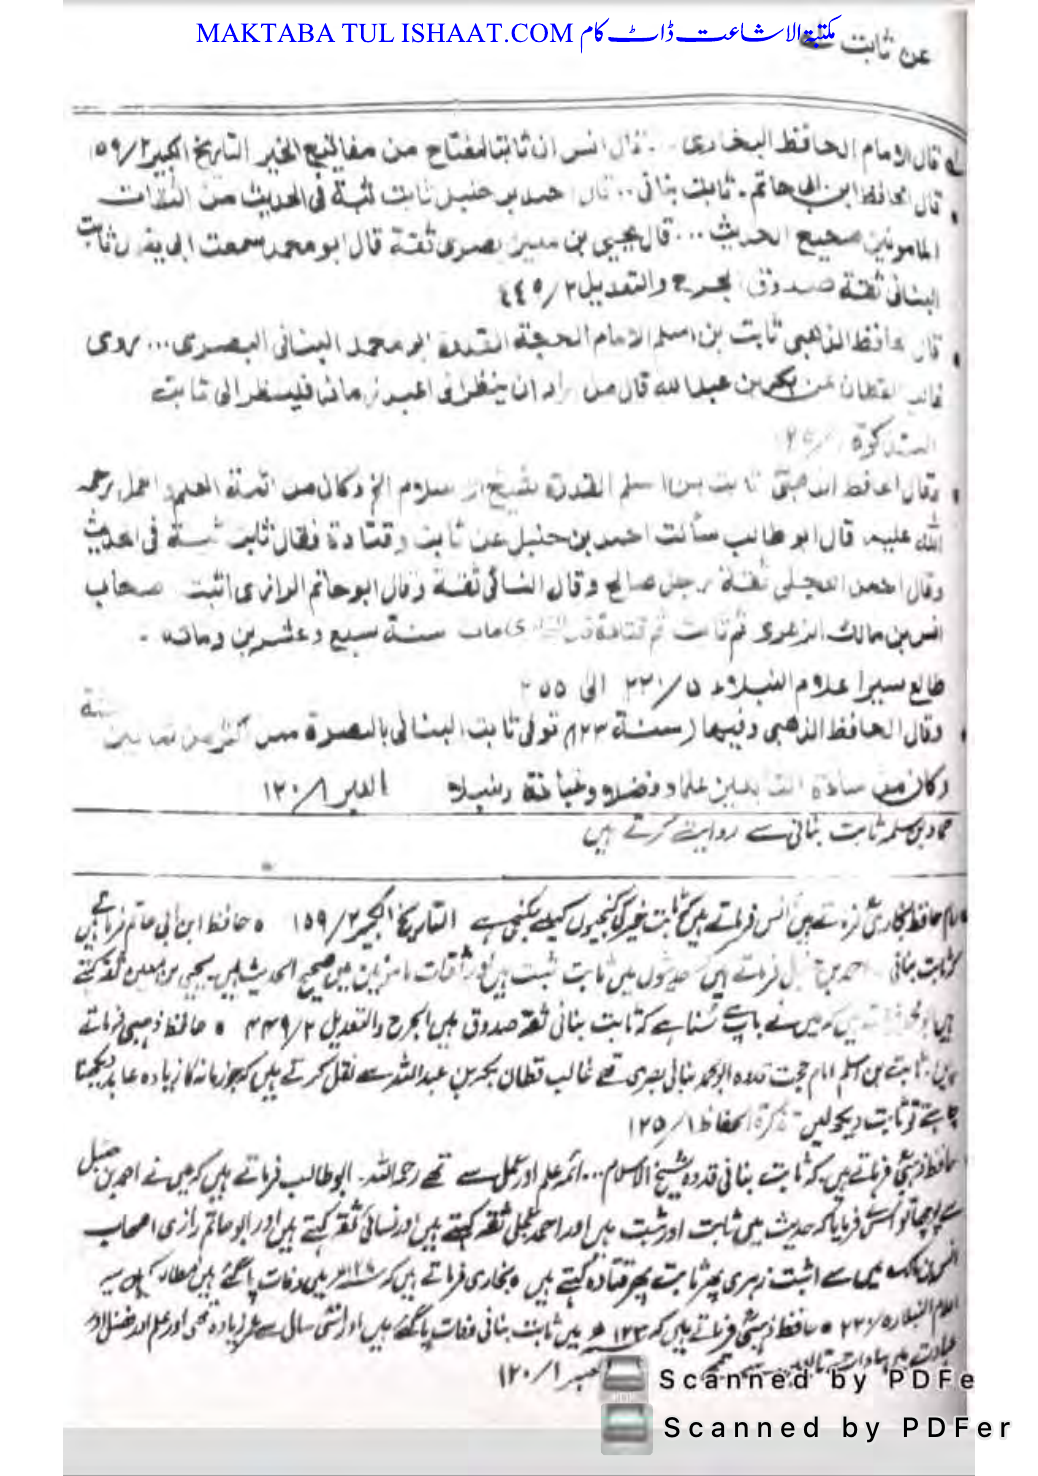 MAKTABA TUL ISHAAT.COM مکتبۃ الاشاعت ڈاٹ کام
عن ثابت
قال الامام الحافظ البخاری ... قال انس ان ثابتا لمفتاح من مفاتیح الخیر التاریخ الکبیر ۱۵۹/۲
قال الحافظ ابن ابی حاتم۔ ثابت بنانی .. قال احمد بن حنبل ثابت ثبت فی الحدیث من الثقات
المامونین صحیح الحدیث ... قال یحیی بن معین بصری ثقة قال ابو محمد سمعت ابی یقول ثابت
البنانی ثقة صدوق الجرح والتعدیل ۲/
قال حافظ الذهبی ثابت بن اسلم الامام الحجة القدوة ابو محمد البنانی البصری ... روی
غالب القطان عن بکر بن عبد الله قال من اراد ان ینظر الی اعبد زمانه فلینظر الی ثابت
التذکرة
وقال الحافظ الذهبی ثابت بن اسلم القدوة شیخ الاسلام الخ وکان من ائمة العلم والعمل رحمه
الله علیه قال ابو طالب سألت احمد بن حنبل عن ثابت وقتادة فقال ثابت ثبت فی الحدیث
وقال احمد العجلی ثقة رجل صالح وقال النسائی ثقة وقال ابو حاتم الرازی اثبت اصحاب
انس بن مالک الزهری ثم ثابت ثم قتادة مات سنة سبع وعشرین ومائة -
طالع سیر اعلام النبلاء ۲۲۰/۵ الی
وقال الحافظ الذهبی وفیها (سنة ۱۲۳) توفی ثابت البنانی بالبصرة من سنة
وکان من سادة التابعین علما وفضلا وعبادة ونبلا العبر ۱۲۰/۱
حماد بن سلمہ ثابت بنانی سے روایت کرتے ہیں
امام حافظ بخاری فرماتے ہیں انس فرماتے ہیں کہ ثابت خیر کی کنجیوں کیلئے کنجی ہے التاریخ الکبیر ۱۵۹/۲ ○ حافظ ابن ابی حاتم فرماتے ہیں
کہ ثابت بنانی احمد بن حنبل فرماتے ہیں کہ حدیثوں میں ثابت ثبت ہیں اور ثقات مامونین میں صحیح الحدیث ہیں۔ یحیی بن معین ثقہ کہتے
ہیں کہ میں نے باپ سے سنا ہے کہ ثابت بنانی ثقہ صدوق ہیں الجرح والتعدیل ۴۴۹/۲ ○ حافظ ذہبی فرماتے
ہیں۔ ثابت بن اسلم امام حجت قدوہ ابو محمد بنانی بصری تھے غالب قطان بکر بن عبد اللہ سے نقل کرتے ہیں کہ جو زمانہ کا زیادہ عابد دیکھنا
چاہتے تو ثابت دیکھ لیں تذکرۃ الحفاظ ۱۲۵/۱
حافظ ذہبی فرماتے ہیں کہ ثابت بنانی قدوہ شیخ الاسلام ... ائمہ علم اور عمل سے تھے رحمہ اللہ۔ ابو طالب فرماتے ہیں کہ میں نے احمد بن حنبل
سے پوچھا تو اس نے فرمایا کہ حدیث میں ثابت اور ثبت ہیں اور احمد عجلی ثقہ کہتے ہیں اور نسائی ثقہ کہتے ہیں اور ابو حاتم رازی اصحاب
انس بن مالک میں سے اثبت زہری پھر ثابت پھر قتادہ کہتے ہیں ○ بخاری فرماتے ہیں کہ میں وفات پا گئے ہیں مطالعہ سیر
اعلام النبلاء ۲۲۰/۵ ○ حافظ ذہبی فرماتے ہیں کہ ۱۲۳ھ میں ثابت بنانی وفات پا گئے ہیں اور اسی سال سے عمر زیادہ تھی اور علم اور فضل اور
عبادت میں سادات العبر ۱۲۰/۱
Scanned by PDFe
Scanned by PDFer